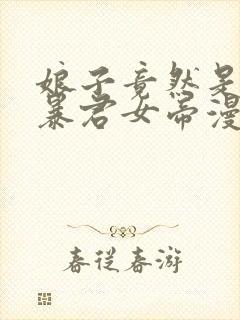 娘子竟然是
暴君女帝漫
春从春游